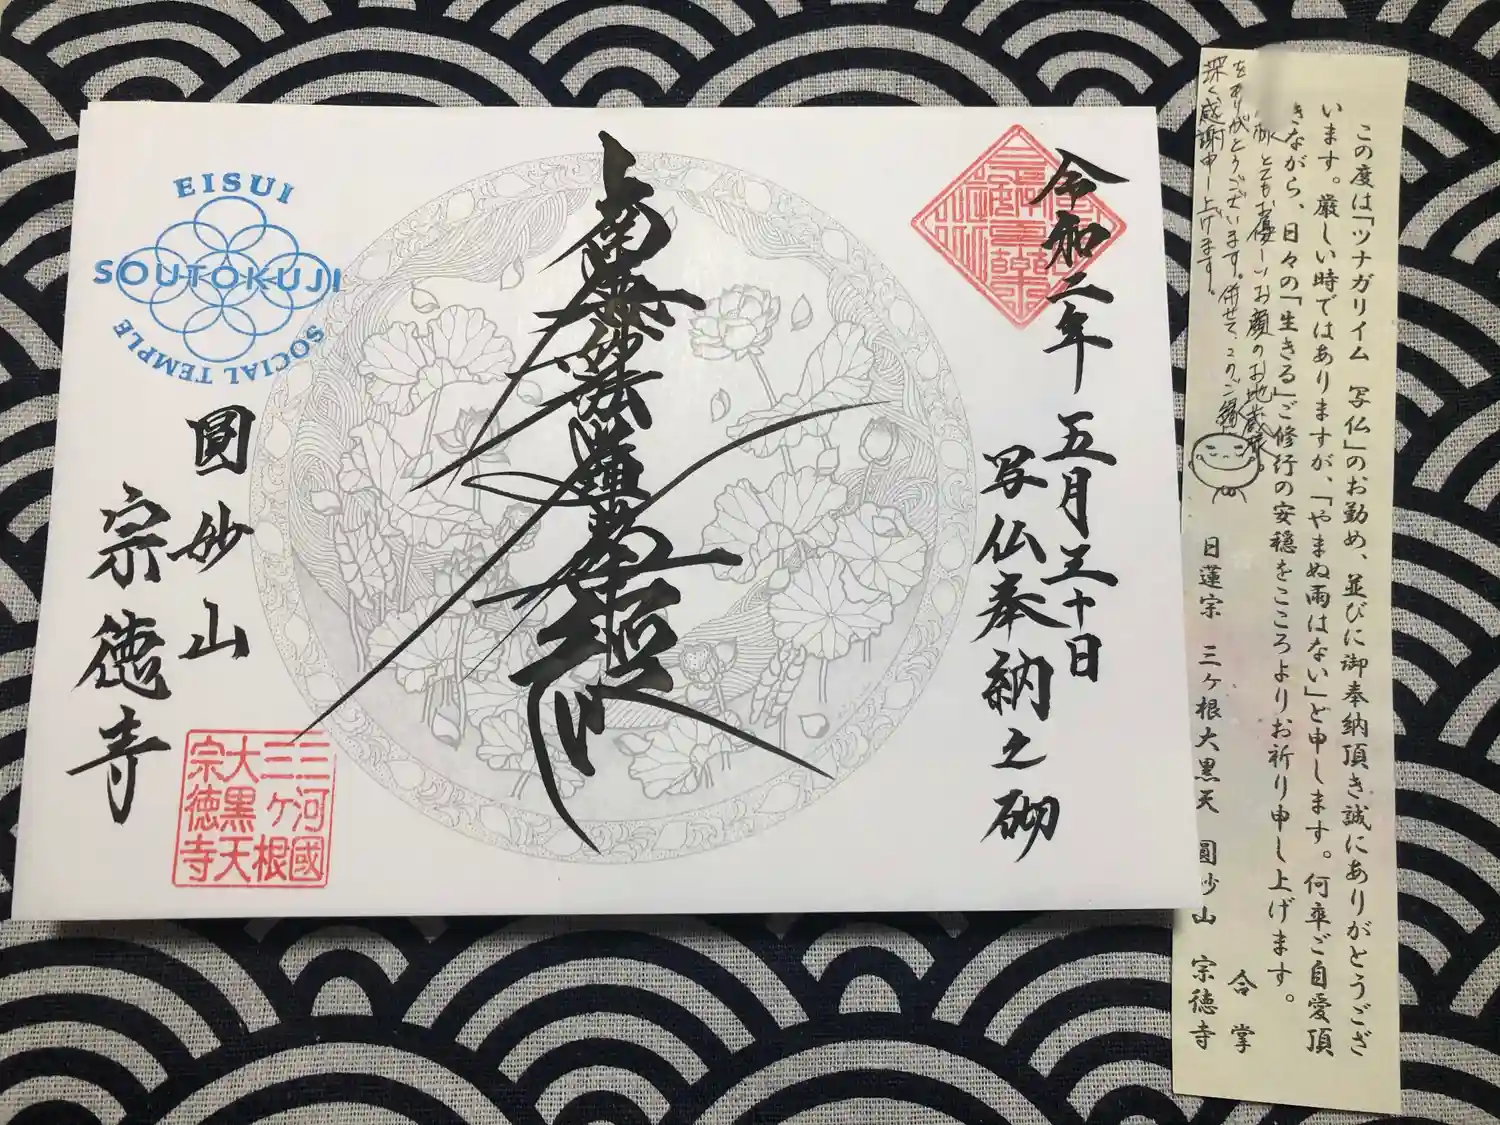 この度は「ツナガリイム 写仏」のお勤め、並びに御奉納頂き誠にありがとうござ
います。厳しい時ではありますが、「やまぬ雨はない」と申します。何卒ご自愛頂
きながら、日々の「生きる」ご修行の安穏をこころよりお祈り申し上げます。
合掌
日蓮宗 三ヶ根大黒天 圓妙山 宗徳寺
とてもお優しいお顔のお地蔵様。
をありがとうございます。併せて、このご縁
深く感謝申し上げます。
令和二年 五月三十日
写仏奉納之砌
南無妙法蓮華経
圓妙山
宗徳寺
EISUI
SOUTOKUJI
SOCIAL TEMPLE
三河國
三ヶ根
大黒天
宗徳寺